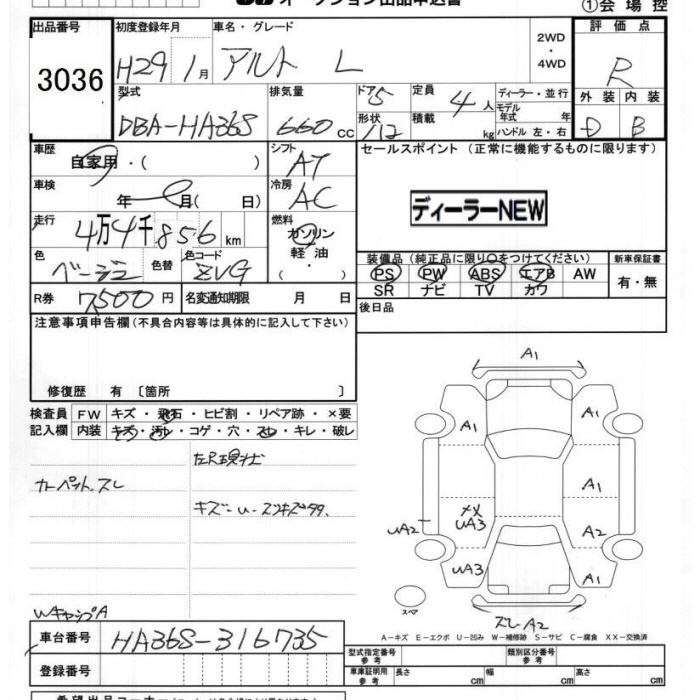 オークション出品申込書 ①会場控
出品番号 3036
初度登録年月 H29 1月
車名・グレード アルト L
2WD・4WD
評価点 R
外装 D 内装 B
型式 DBA-HA36S
排気量 660 cc
ドア 5 形状
定員 4人 積載 kg
ディーラー・並行 モデル年式 年 ハンドル 左・右
車歴 自家用・( )
シフト AT
セールスポイント (正常に機能するものに限ります)
車検 年 月( 日)
冷房 AC
ディーラーNEW
走行 4万4千856 km
燃料 ガソリン 軽油 ( ・ )
色 ベージュ 色替 色コード ZVG
装備品 (純正品に限り○をつけてください) 新車保証書
PS PW ABS エアB AW 有・無
SR ナビ TV カワ
R券 7500円 名変通知期限 月 日
後日品
注意事項申告欄 (不具合内容等は具体的に記入して下さい)
修復歴 有 〔箇所 〕
検査員 FW キズ・飛石・ヒビ割・リペア跡・×要
記入欄 内装 キズ・汚レ・コゲ・穴・スレ・キレ・破レ
カーペット.スレ
WキャップA
A1
A1 A1
A1
UA2 UA3 A2
UA3 A1
スペア スレA2
A-キズ E-エクボ U-凹み W-補修跡 S-サビ C-腐食 XX-交換済
車台番号 HA36S-316735
登録番号
型式指定番号 参考 類別区分番号 参考
車庫証明用 参考 長さ cm 幅 cm 高さ cm